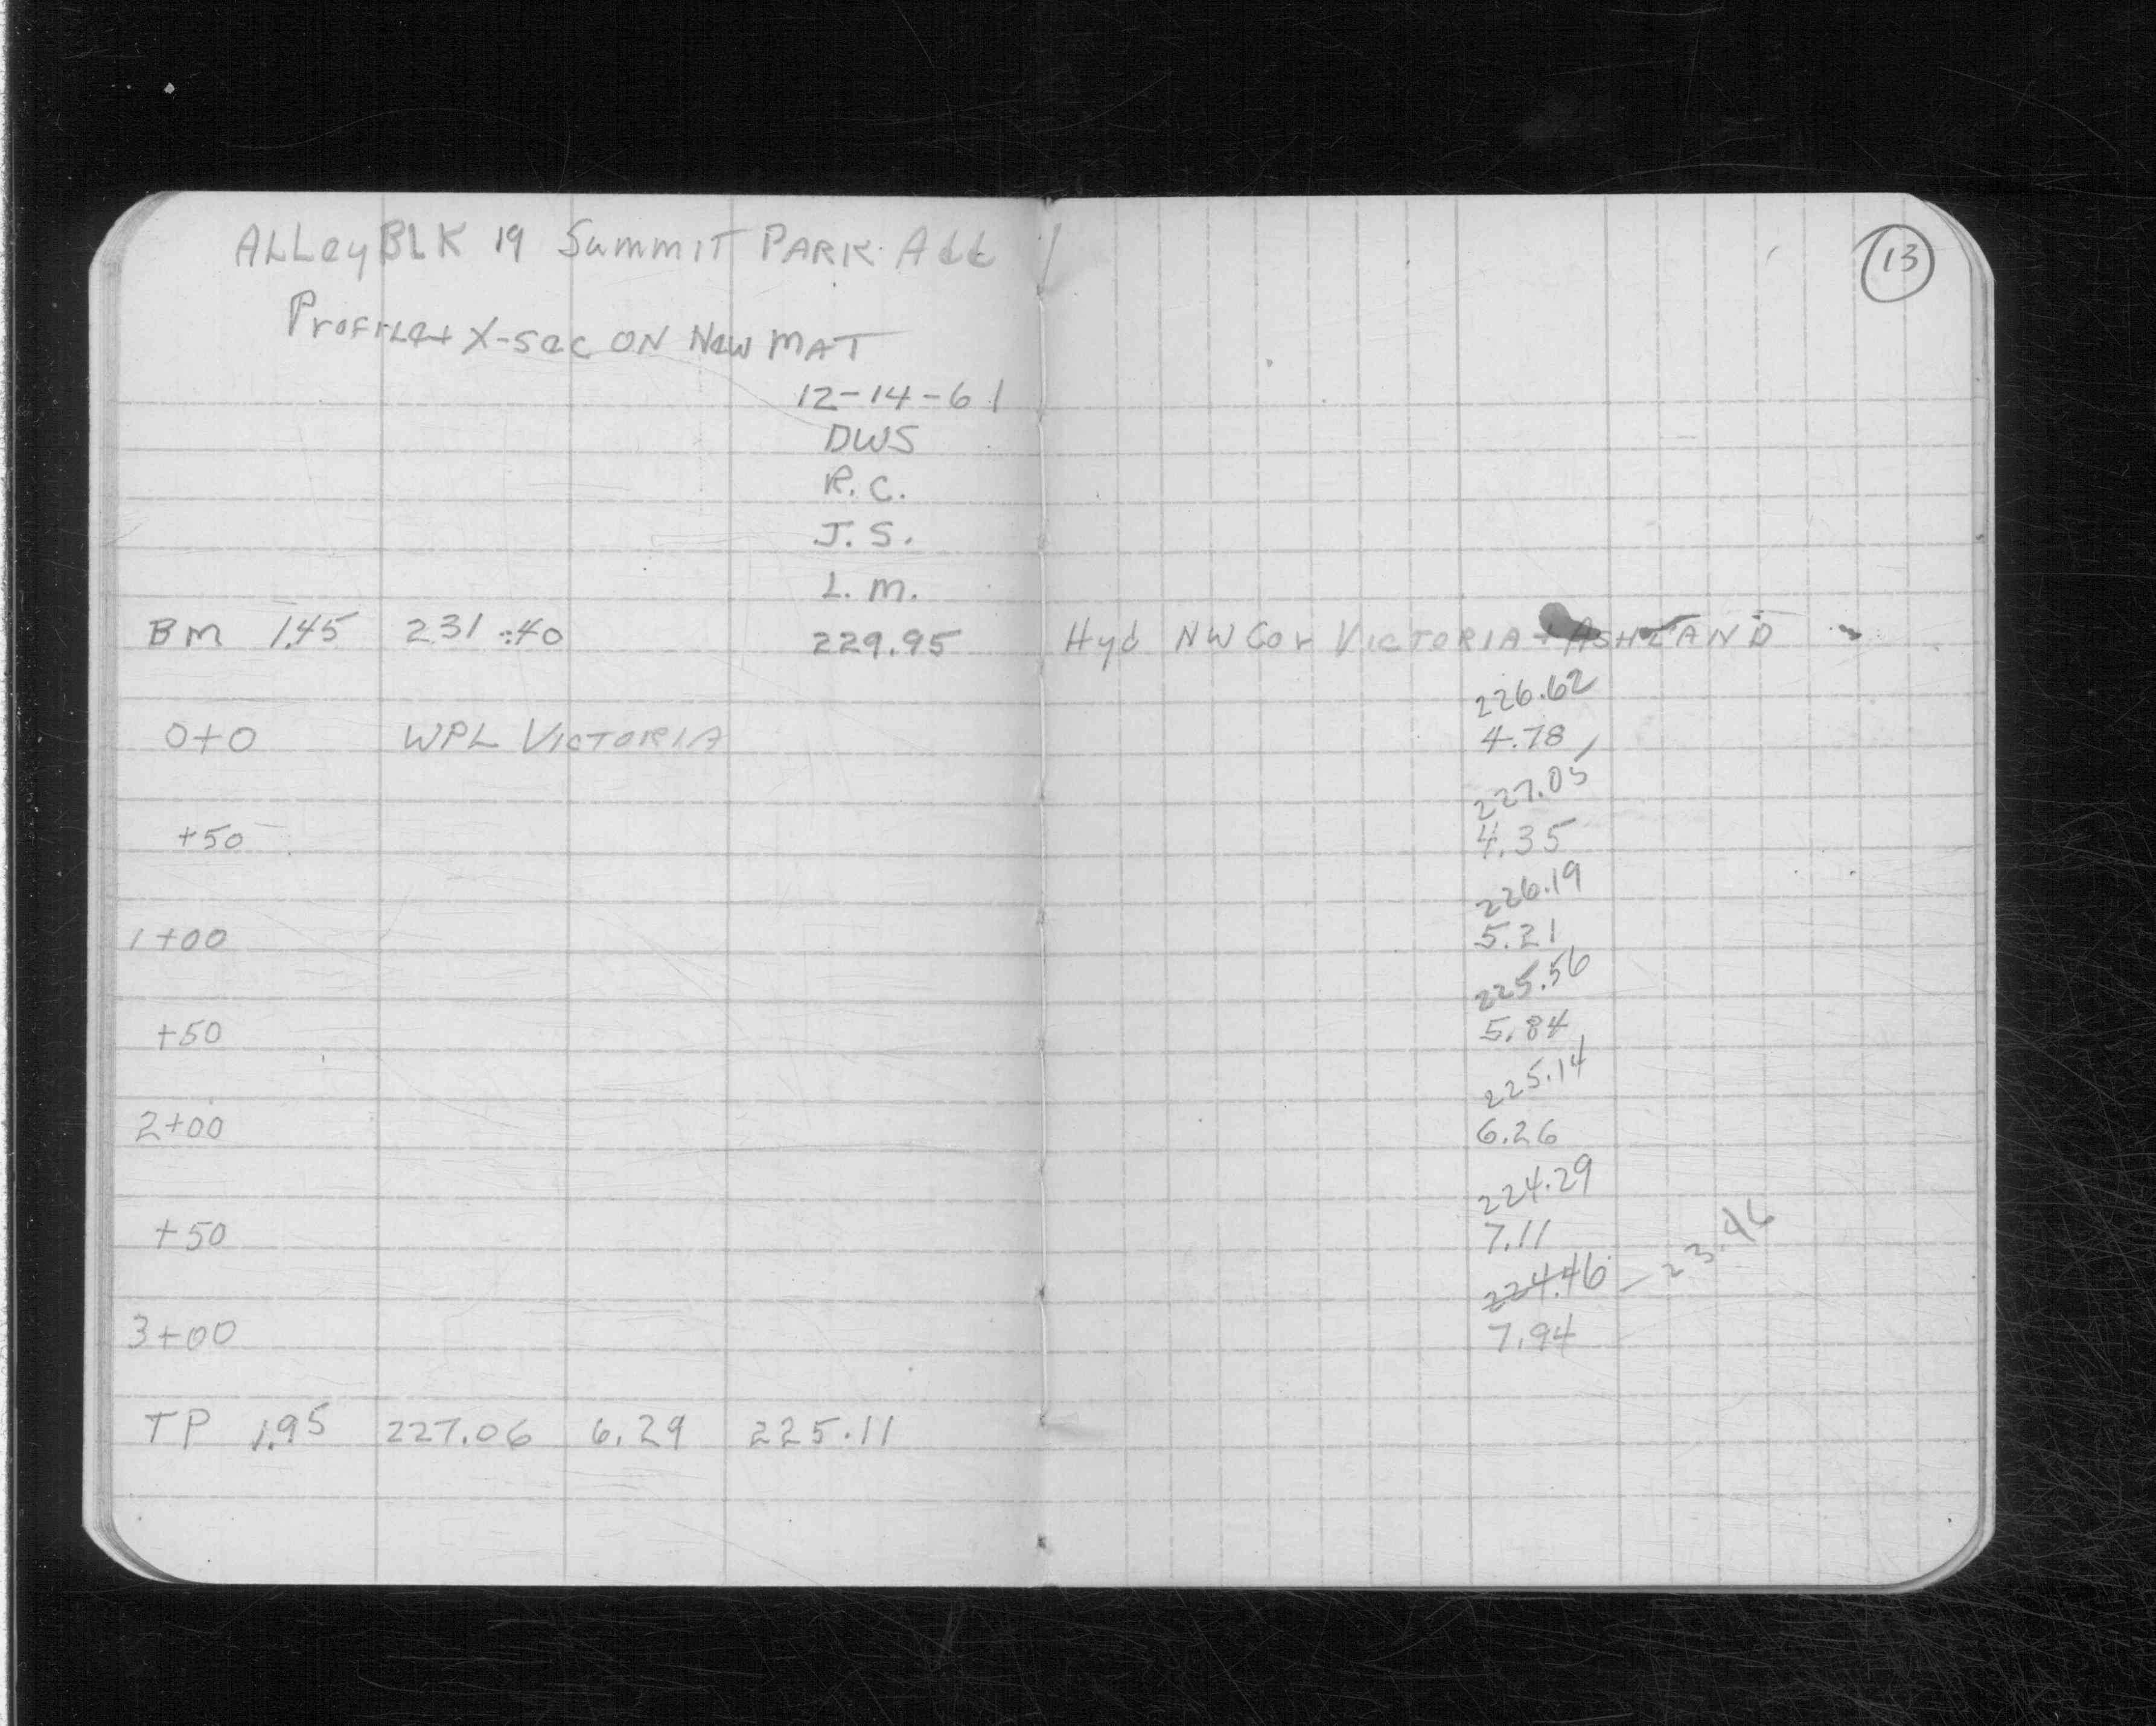 ALLey BLK 19 Summit PARK Add
13
Profile + X-sec ON New MAT
12-14-61
DWS
R.C.
J.S.
L.M.
BM 1.45 231.40 229.95 Hyd NW Cor VICTORIA + ASHLAND
226.62
0+0 WPL VICTORIA 4.78
227.05
+50 4.35
226.19
1+00 5.21
225.56
+50 5.84
225.14
2+00 6.26
224.29
+50 7.11
224.46 – 23.46
3+00 7.94
TP 1.95 227.06 6.29 225.11